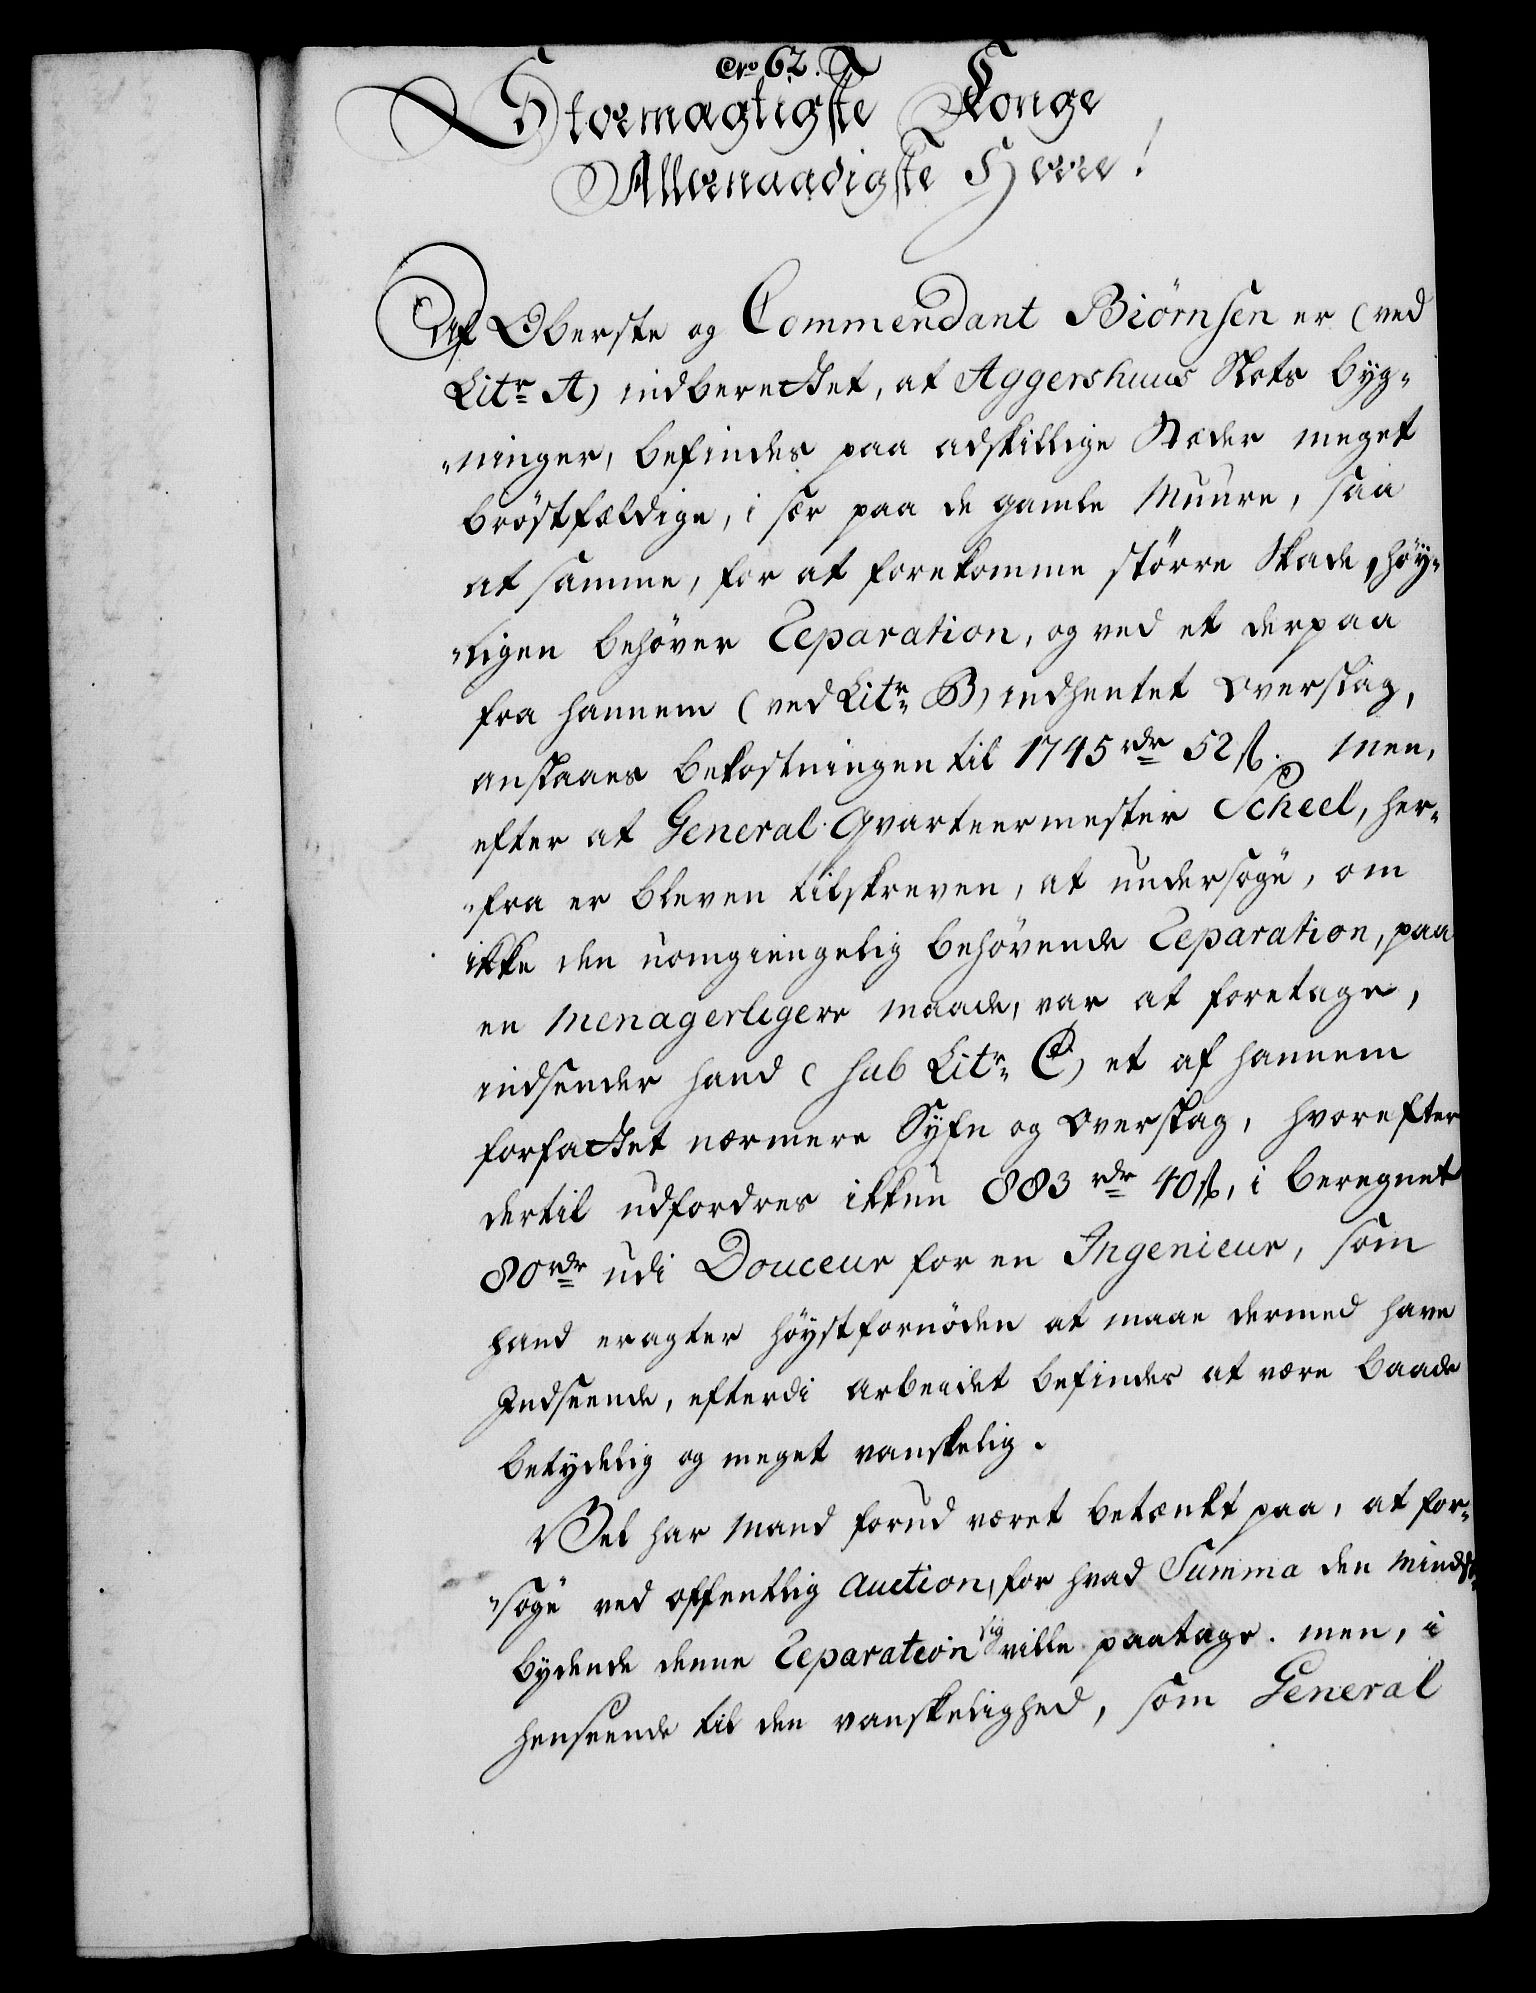 No 62.
Stormægtigste Konge
Allernaadigste Herre!
Af Oberste og Commendant Biörnsen er (ved
Litr A) indberettet, at Aggershuus Slots byg-
-ninger, befindes paa adskillige Stæder meget
bröstfældige, i sær paa de gamle Muure, saa
at samme, for at forekomme större Skade, höy-
-ligen behöver Reparation, og ved et derpaa
fra hannem (ved Litr B) indhentet Overslag,
anslaaes bekostningen til 1745 rdr 52 ß. Men,
efter at General-Qvarteermester Scheel, her-
-fra er bleven tilskreven, at undersöge, om
ikke den uomgiengelig behövende Reparation, paa
en menagerligere maade, var at foretage,
indsender hand (sub Litr C) et af hannem
forfattet nærmere Syfn og Overslag, hvorefter
dertil udfordres ikkun 883 rdr 40 ß, i beregnet
80 rdr udi Douceur for en Ingenieur, som
hand eragter höystfornöden at maae dermed have
Indseende, efterdi arbeidet befindes at være baade
betydelig og meget vanskelig.
Vel har Mand forud været betænkt paa, at for-
-söge ved offentlig Auction, for hvad Summa den Mindst-
bydende denne Reparation sig ville paatage. men, i
henseende til den vanskelighed, som General